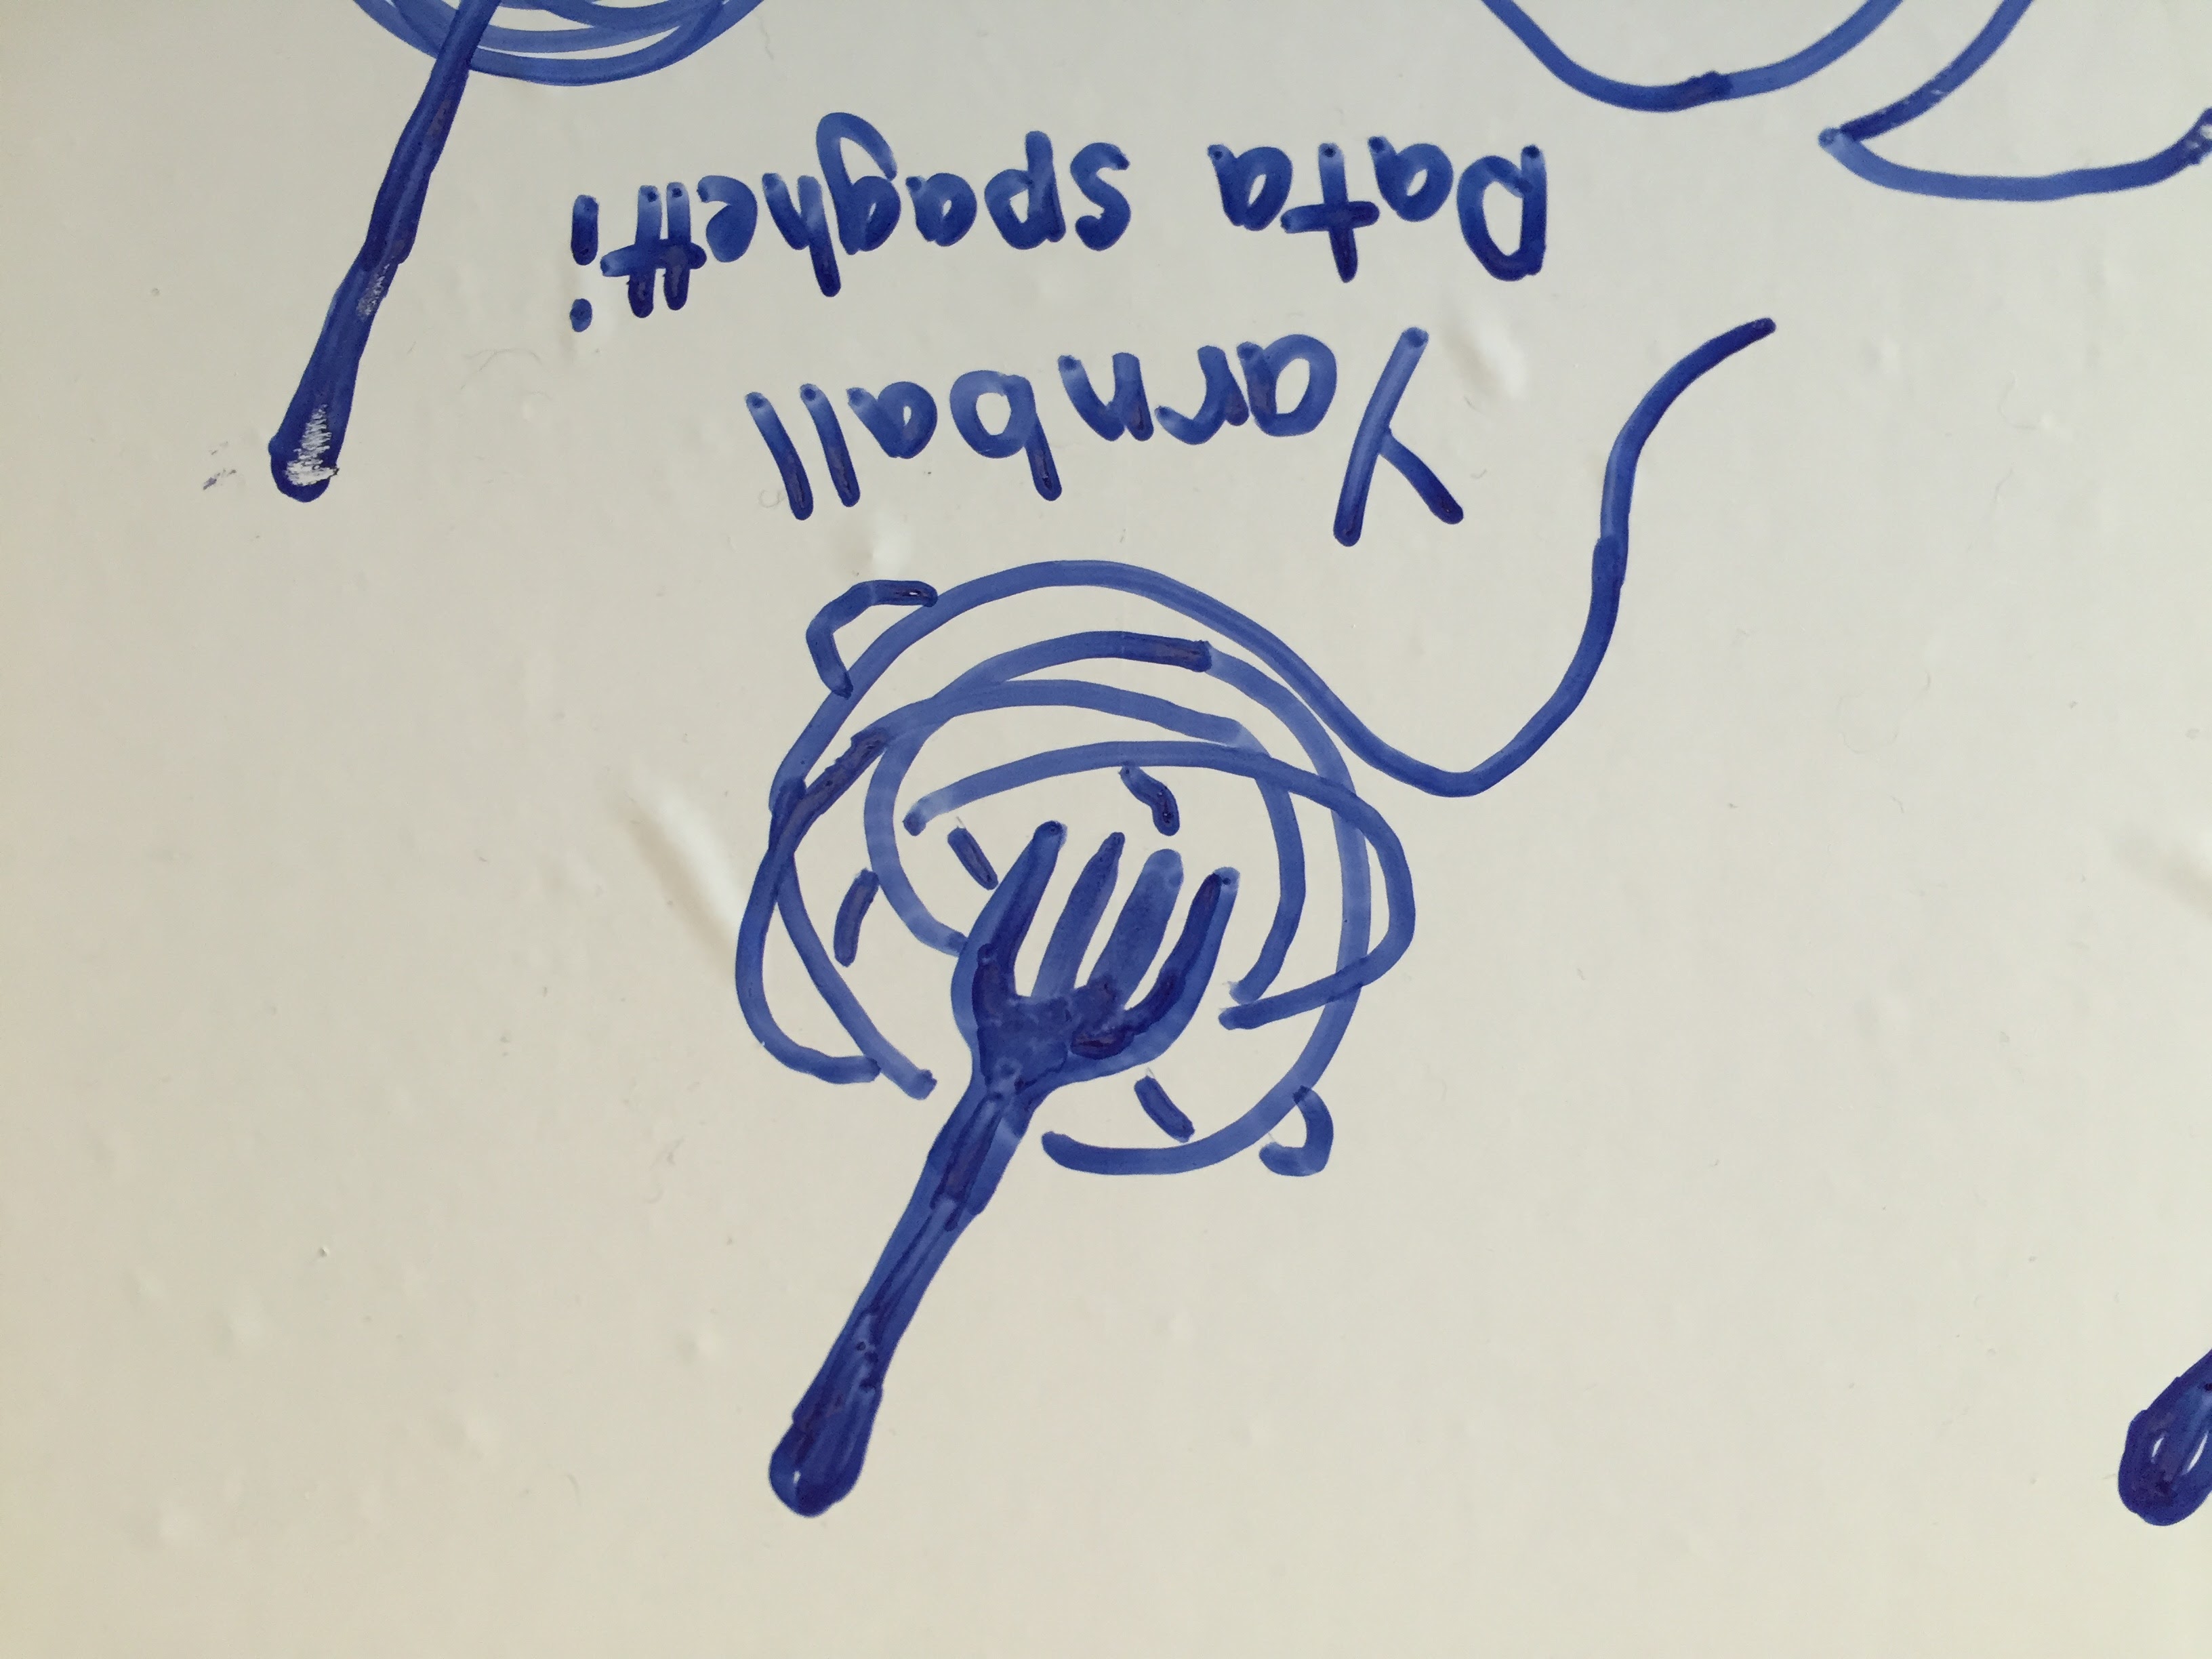 Yarnball
Data spaghetti